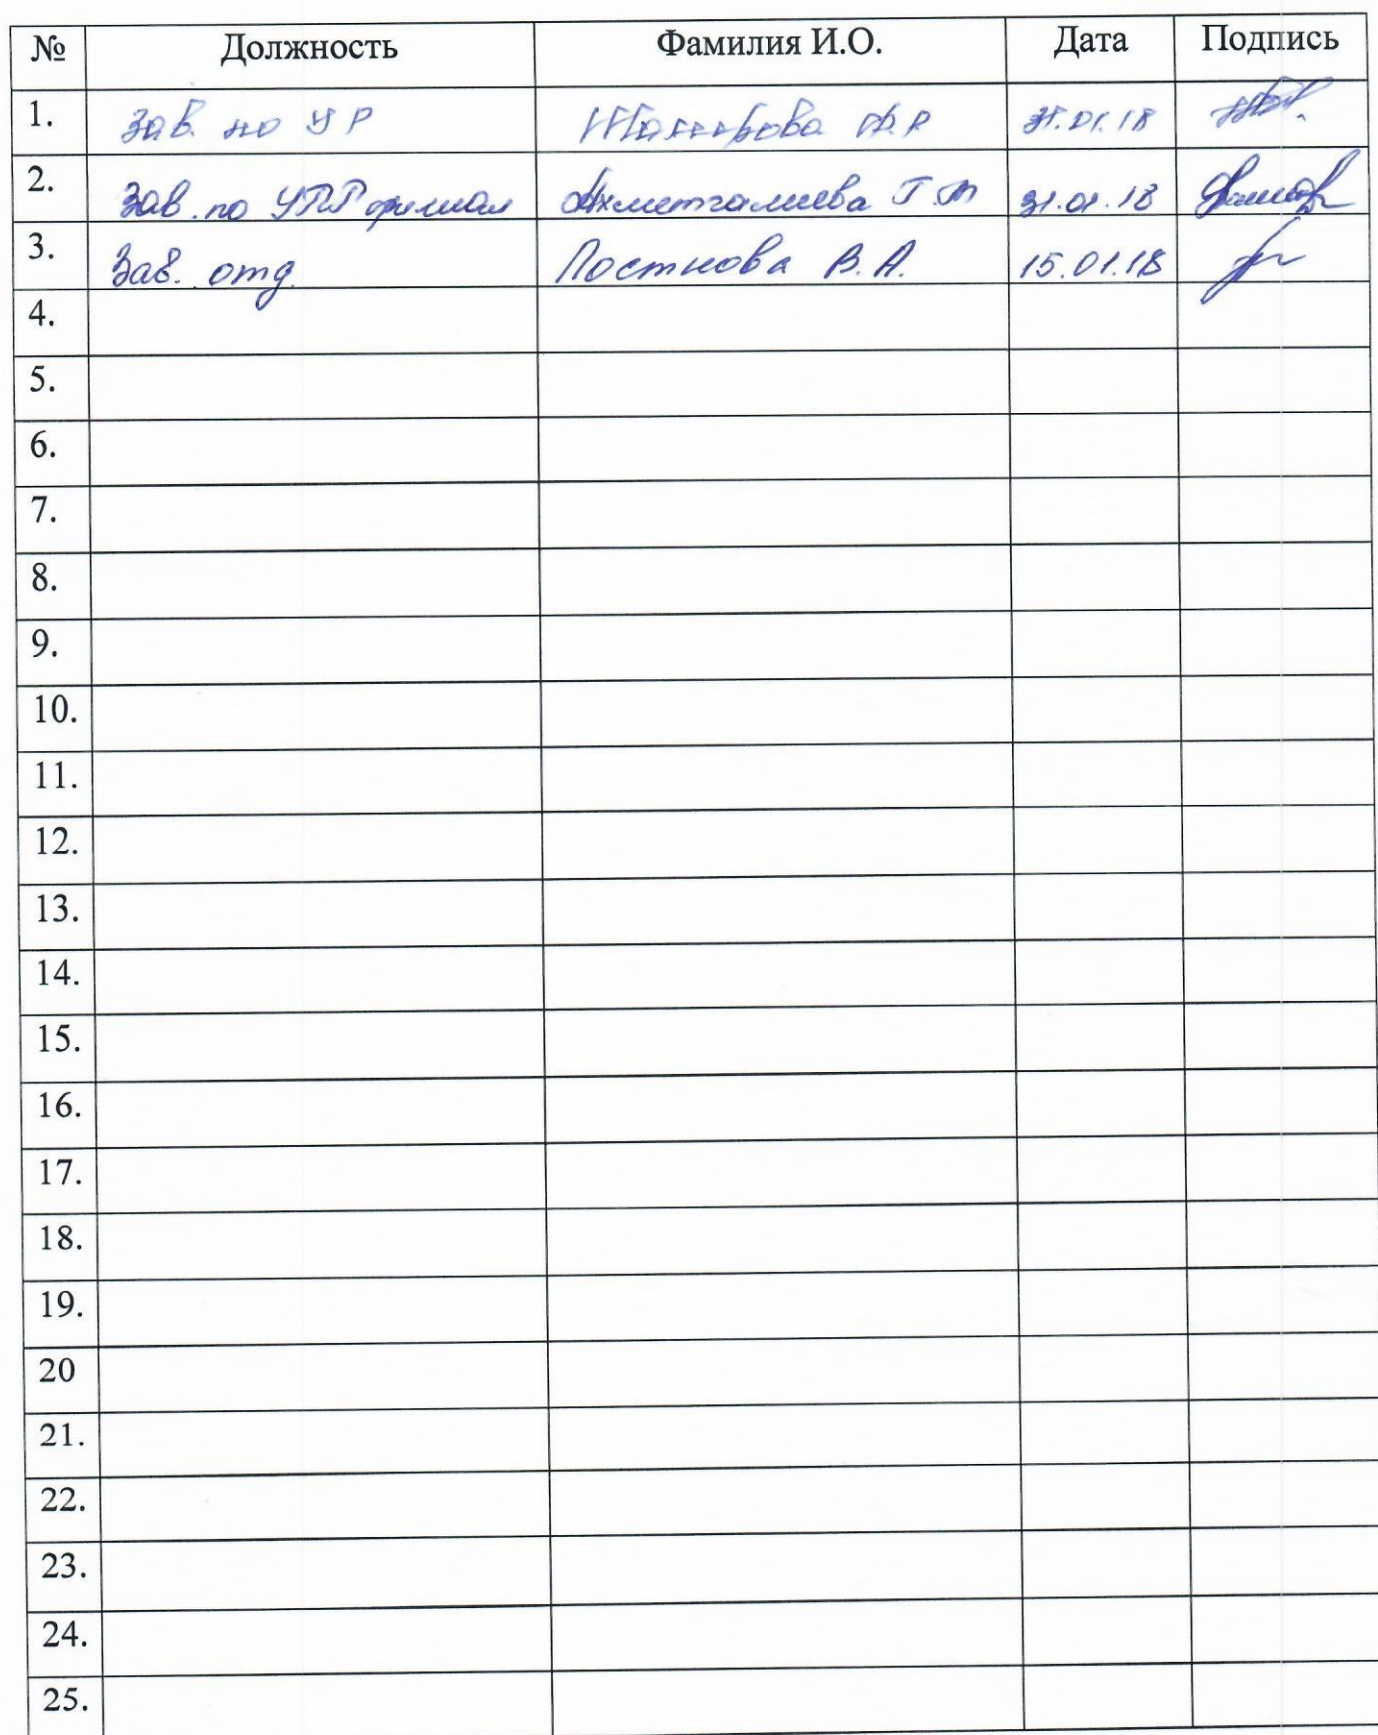 № Должность Фамилия И.О. Дата Подпись
1. Зав. по УР А.Р 31.01.18
2. Зав. по УПР филиал Ахметгалиева Г.Т 31.01.18
3. Зав. отд. Постнова В.А. 15.01.18
4.
5.
6.
7.
8.
9.
10.
11.
12.
13.
14.
15.
16.
17.
18.
19.
20
21.
22.
23.
24.
25.